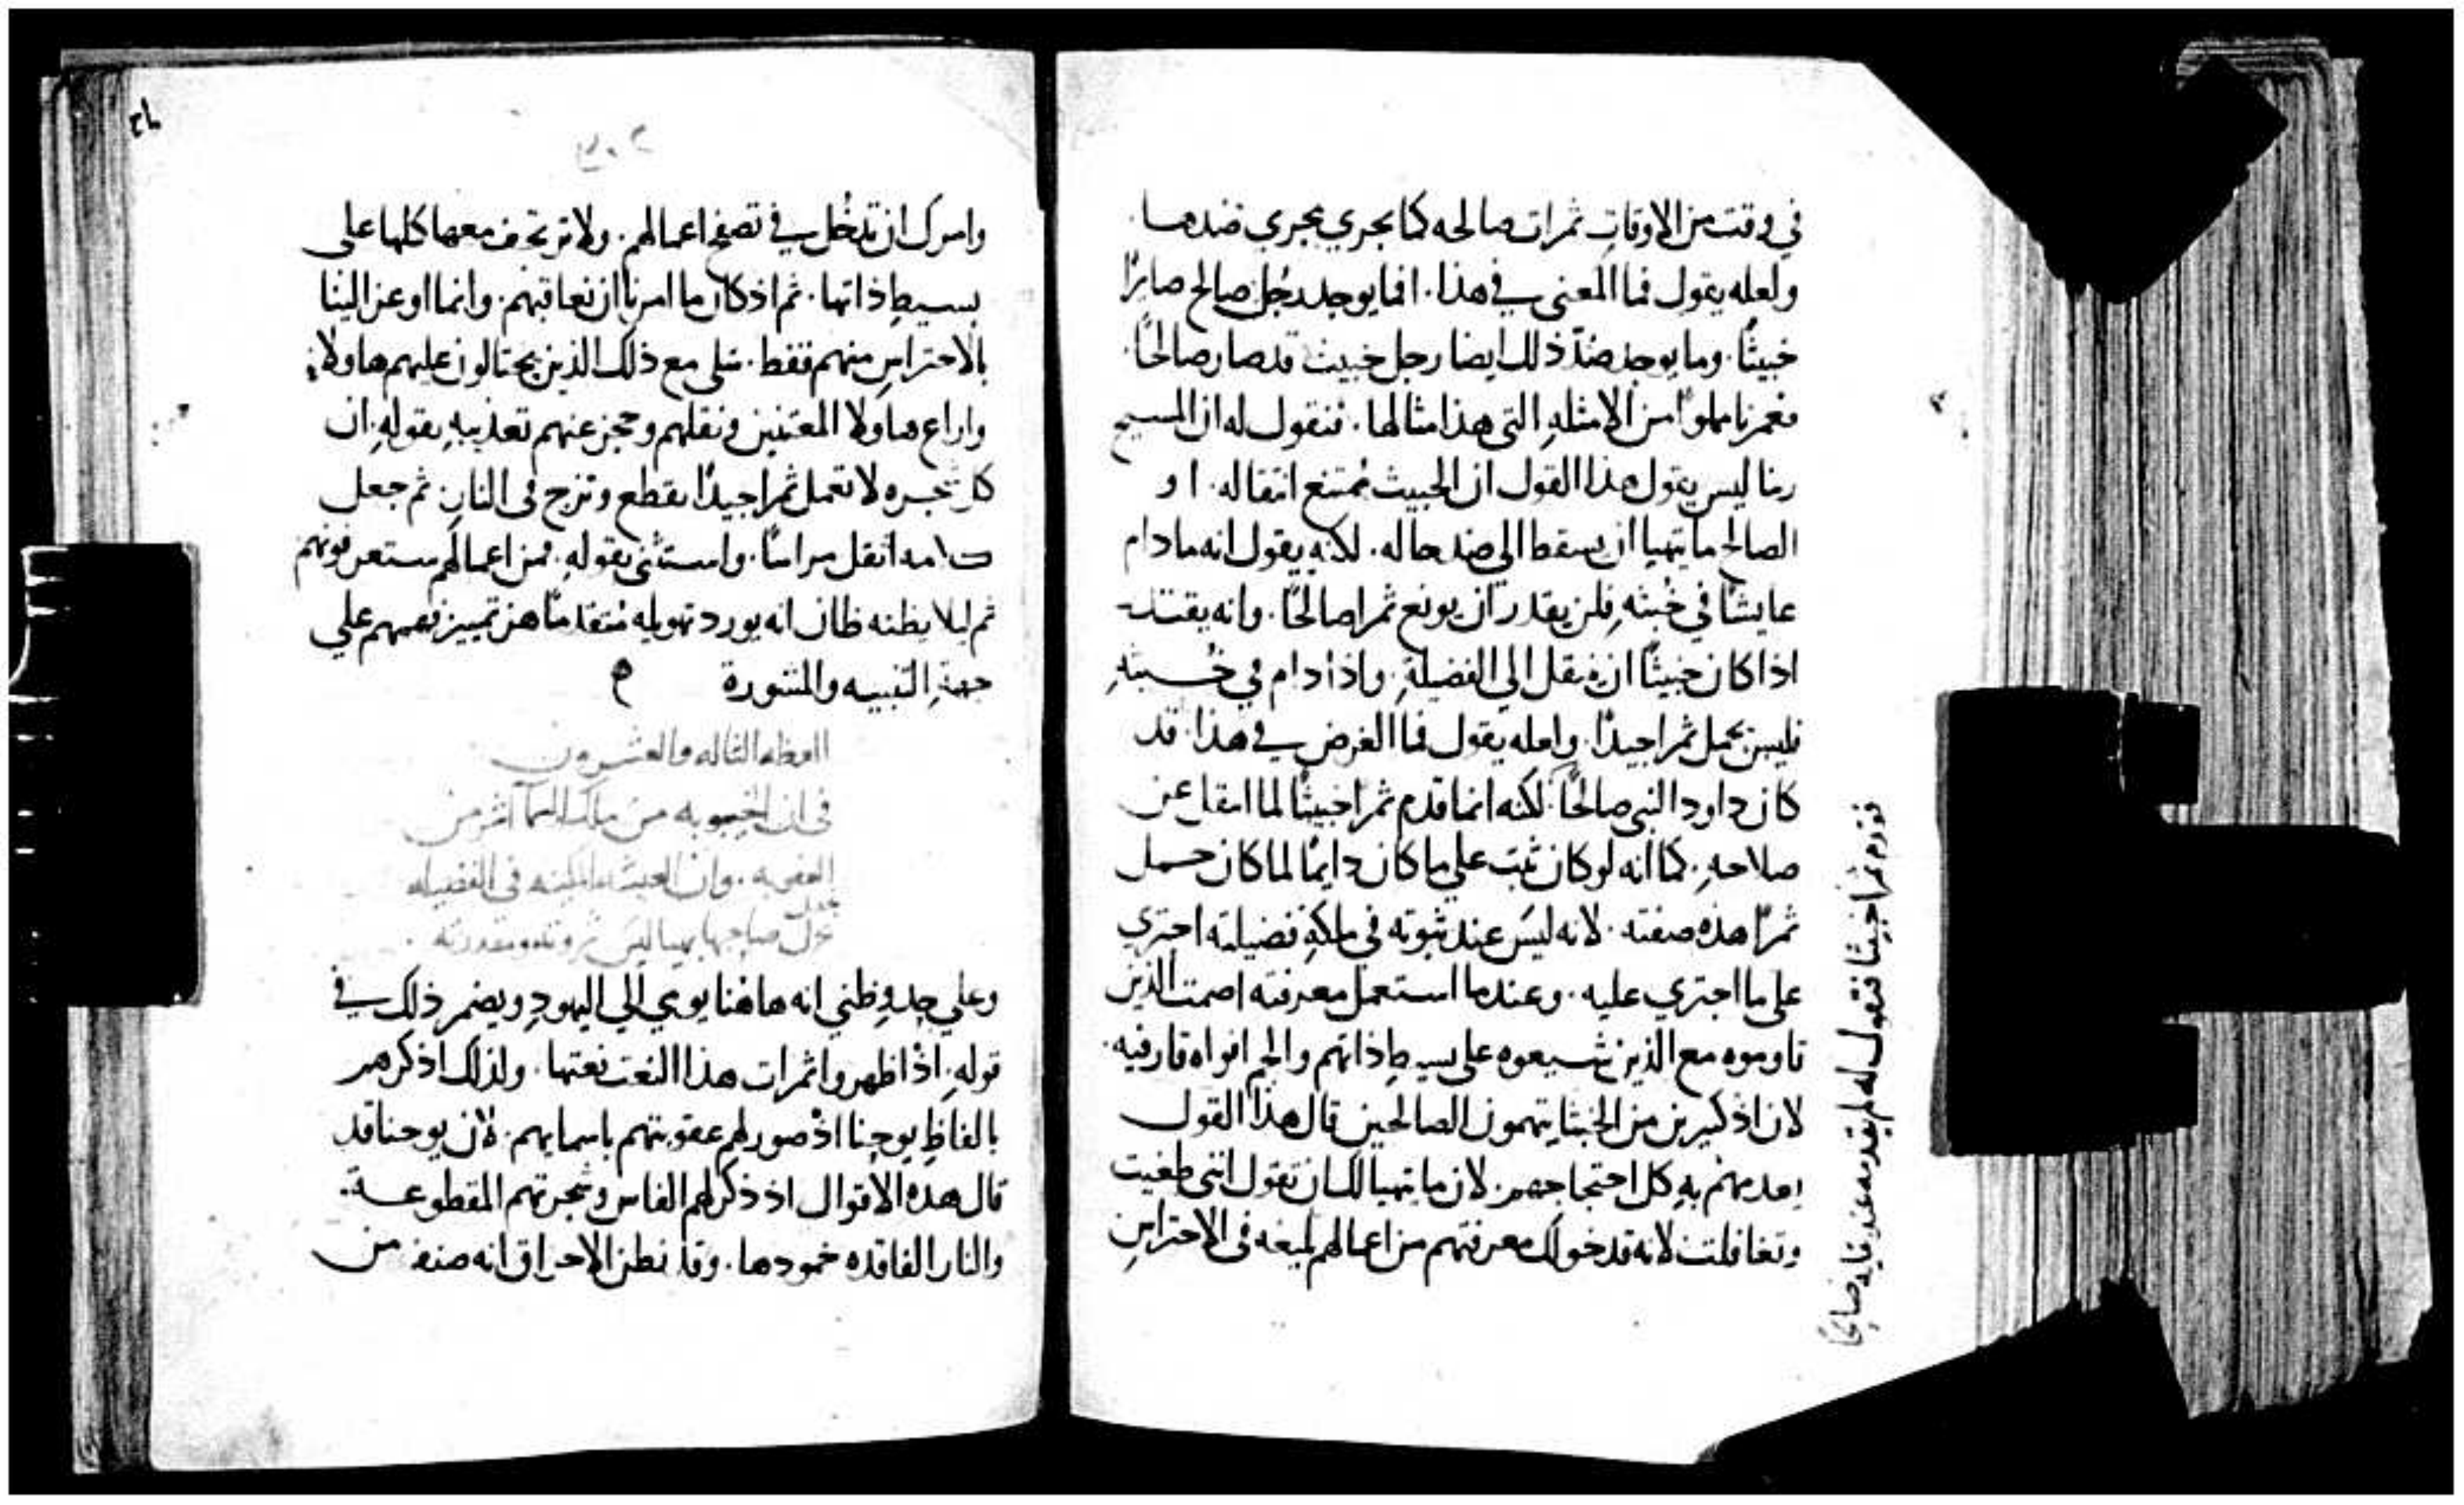 في وقت من الاوقات ثمرات صالحه كما يجري مجري ضدها
ولعله يقول فما المعنى في هذا. افما يوجد رجل صالح صايرًا
خبيثًا. وما يوجد ضدّ ذلك ايضا رجل خبيث قد صار صالحًا.
من الامثلهِ التي هذا مثالها. فنقول له ان المسيح
ربنا ليس يقول هذا القول ان الخبيث ممتنع انتقاله. او
الصالح ما يتهيا ان يسقط الى ضد حاله. لانه يقول انه مادام
عايشًا في خُبثهِ فلن يقدر ان يونع ثمرا صالحًا. وانه يقتدر
اذا كان خبيثًا ان ينتقل الي الفضيلةِ. واذا دام في خُـــبثهِ
فليس يحمل ثمرا جيدًا. ولعله يقول فما الغرض في هذا. قد
كان داود النبي صالحًا. لكنه انما قدم ثمرا خبيثًا لما انتقل عن
صلاحهِ. كما انه لو كان ثبت علي ما كان دايمًا لما كان حمل
ثمرًا هذه صفته. لانه ليسَ عند ثبوته في ملكةِ فضيلته اجتري
على ما اجتري عليه. وعندما استعمل معرفته اصمت الذين
قاوموه مع الذين شيعوه على بسيطِ ذاتهم والجم افواه قارفيه.
لان اذ كثيرين من الخبثا يتهمون الصالحين قال هذا القول
يعدمهم بهِ كل احتجاجهم. لان ما يتهيا لك ان تقول انني طغيت
وتغافلت لانه قد خولك معرفتهم من اعمالهم بليغه في الاحتراسِ
ثمرا خبيثًا فنقول له لم يقدمه عند صالحًا
وامرك ان تدخُل في تصفح اعمالهم. ولا ترتجف معها كلها على
بسيطِ ذاتها. ثم اذ كان ما امرنا ان نعاقبهم. وانما اوعز الينا
بالاحتراسِ منهم فقط. سلى مع ذلك الذين يحتالون عليهم هاولاءِ
واراع هاولا ونقلهم وحجز عنهم تعذيبهِ بقولهِ. ان
كل شجره لا تعمل ثمرا جيدًا تقطع وتزج في النارِ. ثم جعل
كلامه اثقل مراسًا. واستثنى بقوله. فمن اعمالهم ستعرفونهم
ثم ليلا يظنه ظان انه يورد تهويله متقدمًا هز تمييز فهمهم علي
جهةِ التنبيه والمشورة ه
العظه الثالثه والعشرون
في ان الخيبوبه من ملك السما اشر من
العقوبه. وان العيشه الكاينه في الفضيله
تجعل صاحبها مهيبا ليس ثروته ومقدرته.
وعلي حدوِ ظني انه هاهُنا يومي الي اليهودِ ويضمر ذلك في
قولهِ. اذ اظهروا ثمرات هذا النعت نعتها. ولذلك اذكرهم
بالفاظِ يوحنا اذ صور لهم عقوبتهم باسمايهم. لان يوحنا قد
قال هذه الاقوال اذ ذكر لهم الفاس وشجرتهم المقطوعــة.
والنار الفاقده خمودها. وقد نظن الاحراق انه صنف من